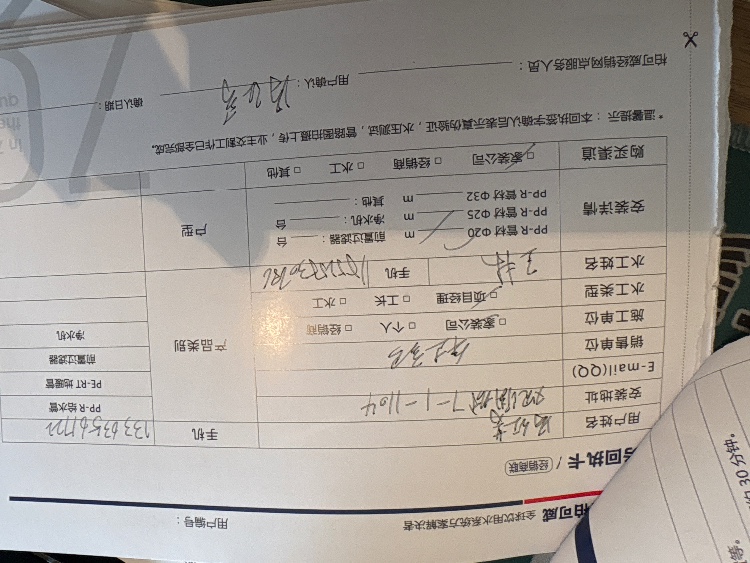 柏可威 全球饮用水系统方案解决者
用户编号：
回执卡 / 经销商联
用户姓名
手机 133
安装地址 7-1-1104
E-mail(QQ)
销售单位
施工单位 家装公司 □ 个人 □ 经销商
水工类型 项目经理 □ 工长 □ 水工
水工姓名 手机
产品类别
PP-R 给水管
PE-RT 地暖管
前置过滤器
净水机
安装详情
PP-R 管材 Φ20 m 前置过滤器： 台
PP-R 管材 Φ25 m 净水机： 台
PP-R 管材 Φ32 m 其他：
户型
购买渠道 家装公司 □ 经销商 □ 水工 □ 其他
*温馨提示：本回执签字确认后表示真伪验证，水压测试，管路图拍摄上传，业主交割工作已全部完成。
柏可威经销网点服务人员： 用户确认： 确认日期：
约 30 分钟。